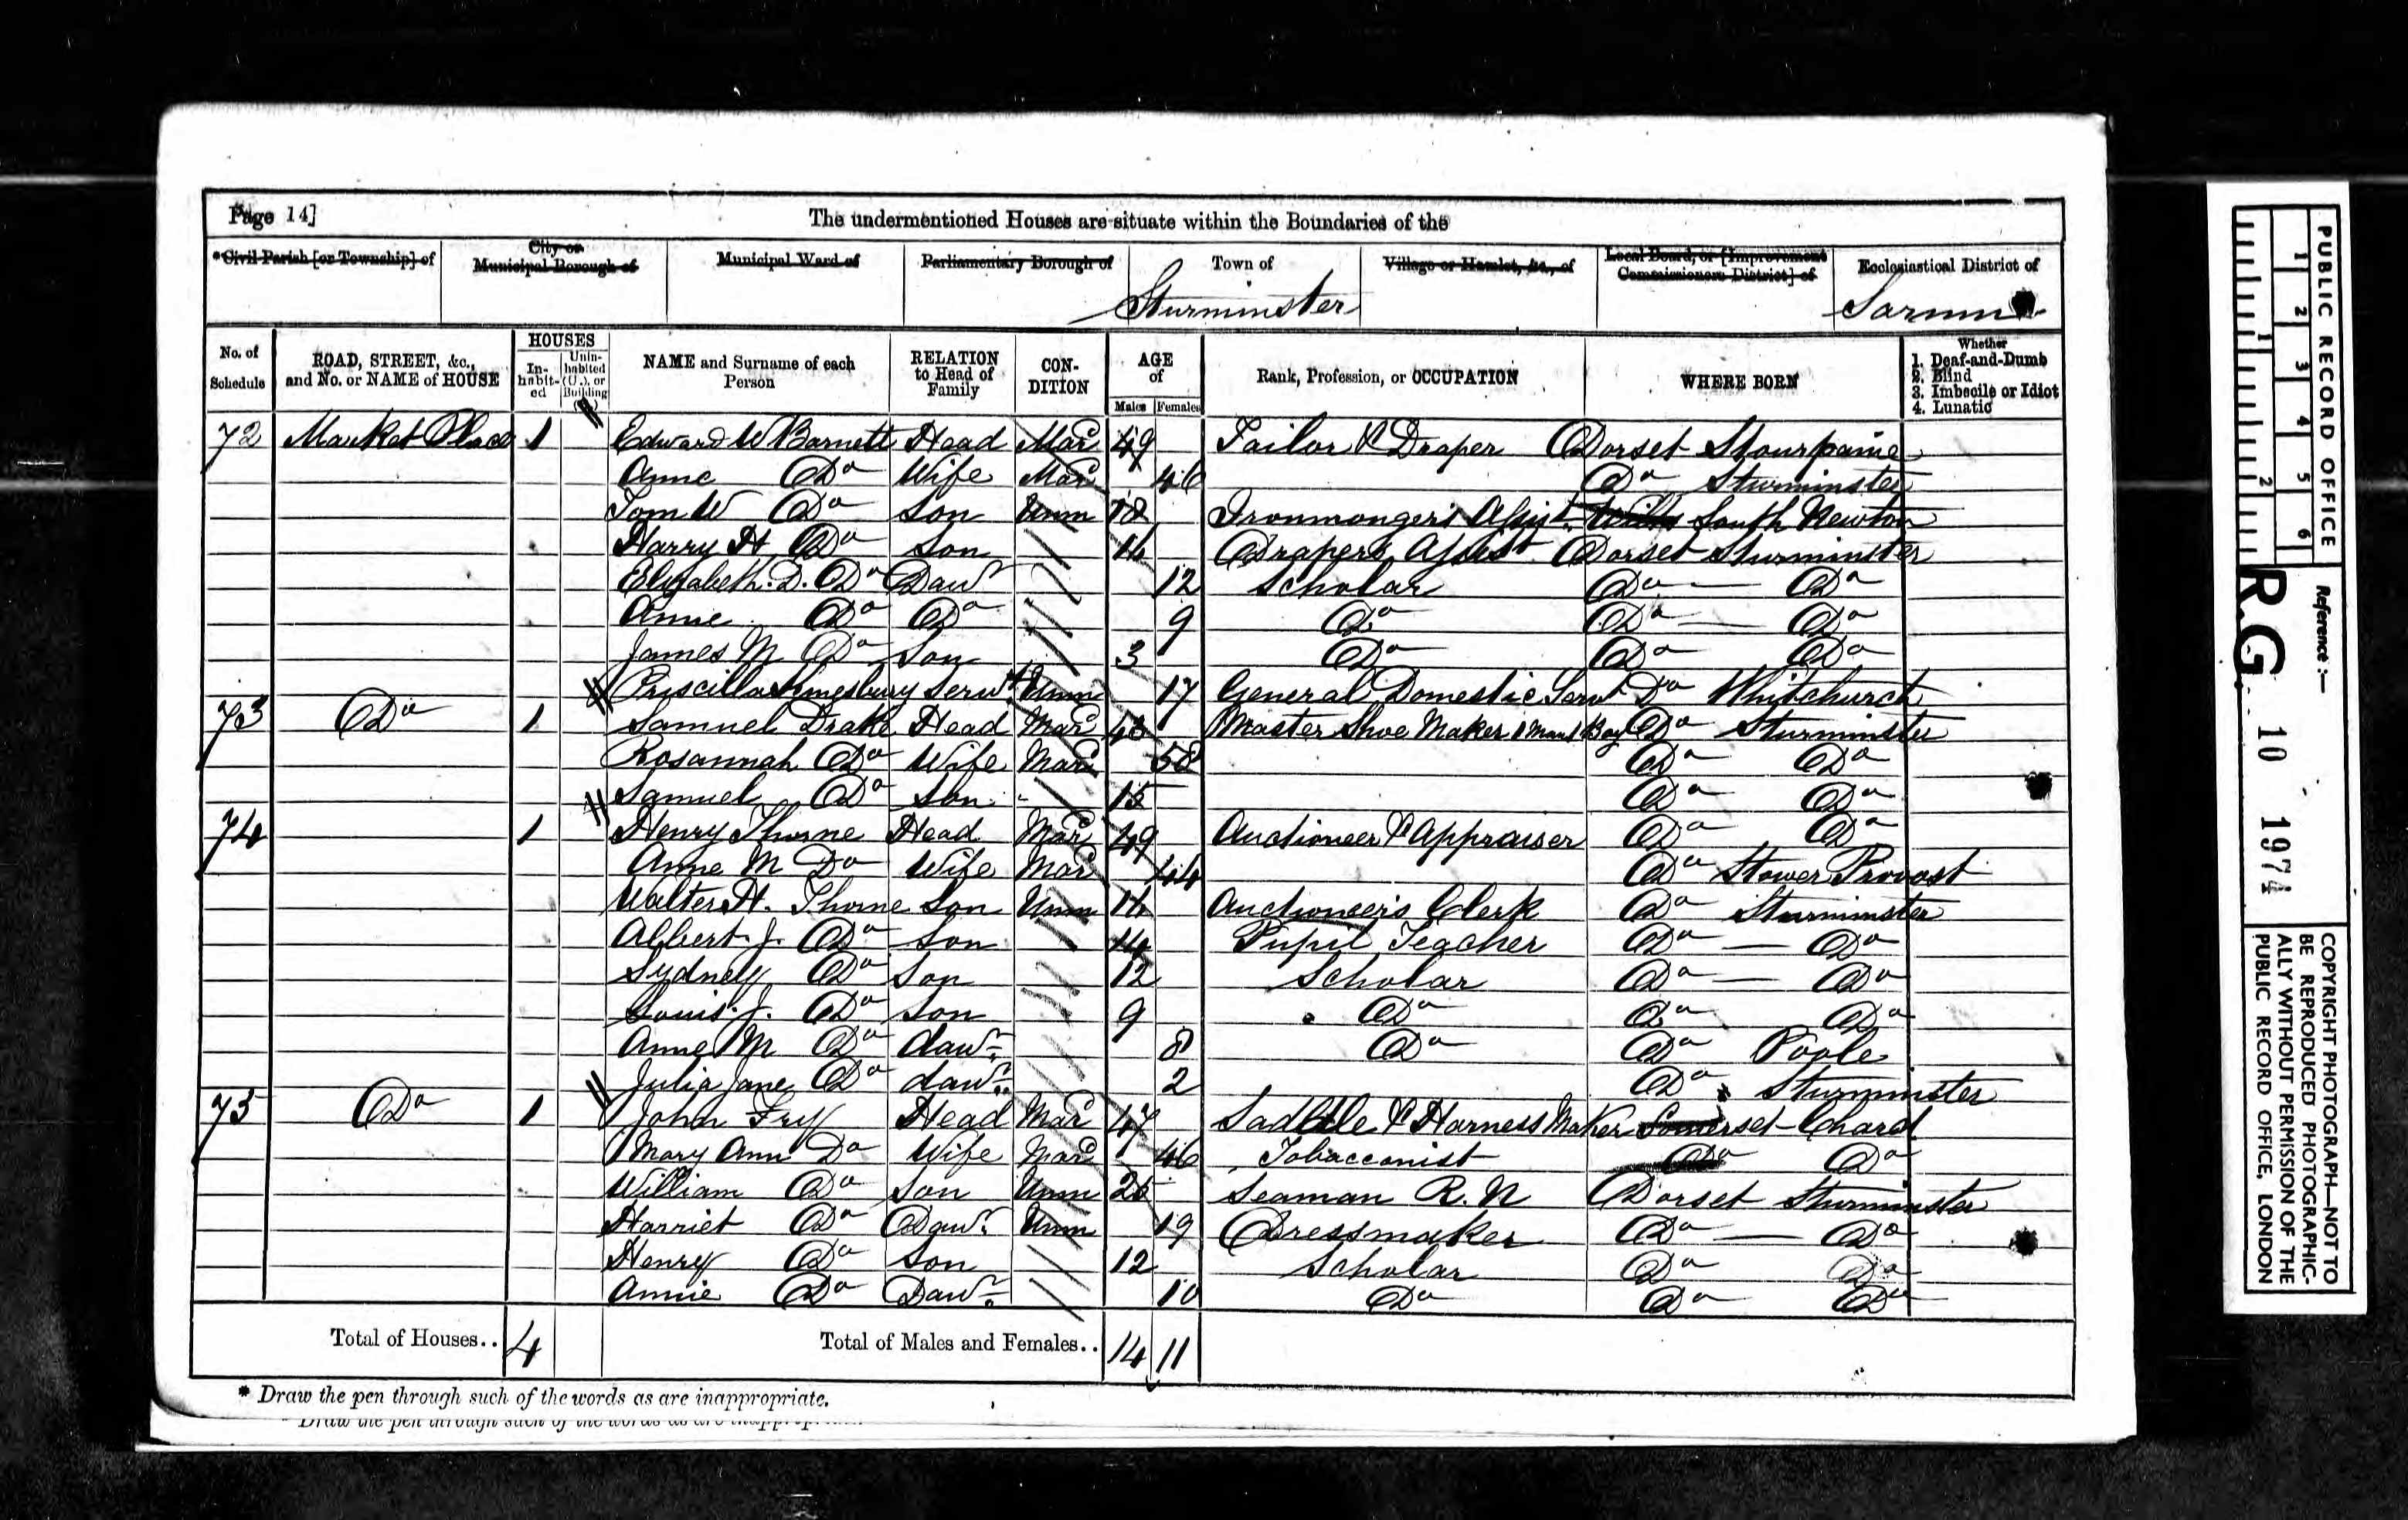 Page 14]
The undermentioned Houses are situate within the Boundaries of the
*Civil Parish [or Township] of City or Municipal Borough of Municipal Ward of Parliamentary Borough of Town of Village or Hamlet, &c., of Local Board, or [Improvement Commissioners District] of Ecclesiastical District of
Sturminster Sarum
No. of Schedule ROAD, STREET, &c., and No. or NAME of HOUSE HOUSES In-habit-ed Unin-habited (U.), or Building (B.) NAME and Surname of each Person RELATION to Head of Family CON-DITION AGE of Males Females Rank, Profession, or OCCUPATION WHERE BORN Whether 1. Deaf-and-Dumb 2. Blind 3. Imbecile or Idiot 4. Lunatic
72 Market Place 1 Edward W Barnett Head Mard 49 Tailor & Draper Dorset Stourpaine
Anne Do Wife Mard 46 Do Sturminster
Tom W Do Son Unm 18 Ironmonger's Assist. Wilts South Newton
Harry H Do Son 16 Drapers Assist Dorset Sturminster
Elizabeth. D. Do Dawr 12 Scholar Do — Do
Annie Do Do 9 Do Do — Do
James M Do Son 3 Do Do Do
Priscilla Servt Unm 17 General Domestic Servt Do Whitchurch
73 Do 1 Samuel Drake Head Mard Master Shoe Maker 1 Man 1 Boy Do Sturminster
Rosannah Do Wife Mard 58 Do Do
Samuel Do Son 15 Do Do
74 1 Henry Thorne Head Mard 49 Auctioneer & Appraiser Do Do
Anne M Do Wife Mard 44 Do Stower Provost
Walter H. Thorne Son Unm 16 Auctioneer's Clerk Do Sturminster
Albert. J. Do Son 14 Pupil Teacher Do — Do
Sydney Do Son 12 Scholar Do — Do
Louis. J. Do Son 9 Do Do Do
Anne M Do dawr. 8 Do Do Poole
Julia Jane Do dawr. 2 Do Sturminster
75 Do 1 John Fry Head Mard 47 Saddle & Harness Maker Somerset - Chard
Mary Ann Do Wife Mard 46 Tobacconist Do Do
William Do Son Unm Seaman R. N Dorset Sturminster
Harriet Do Dawr. Unm 19 Dressmaker Do — Do
Henry Do Son 12 Scholar Do Do
Annie Do Dawr. 10 Do Do Do
Total of Houses.. 4 Total of Males and Females.. 14 11
* Draw the pen through such of the words as are inappropriate.
PUBLIC RECORD OFFICE
1 2 3 4 5 6
1 2
Reference :—
R.G. 10 1974
COPYRIGHT PHOTOGRAPH—NOT TO
BE REPRODUCED PHOTOGRAPHIC-
ALLY WITHOUT PERMISSION OF THE
PUBLIC RECORD OFFICE, LONDON